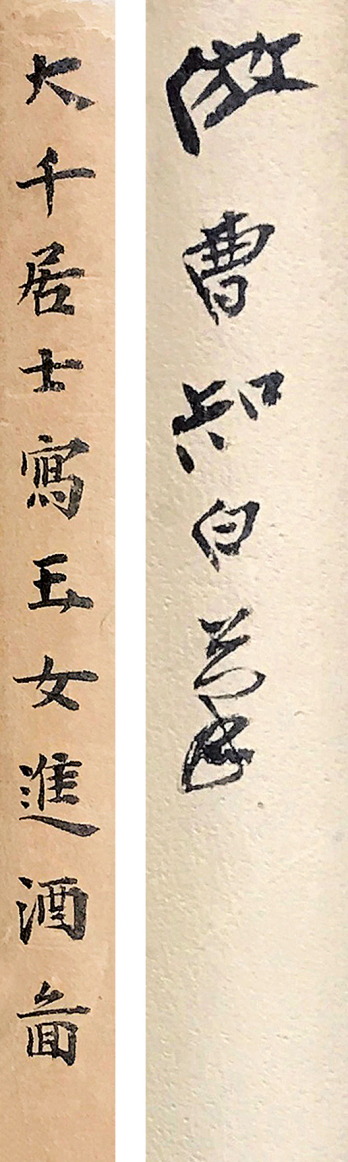 倣曹知白筆
大千居士寫玉女進酒啚